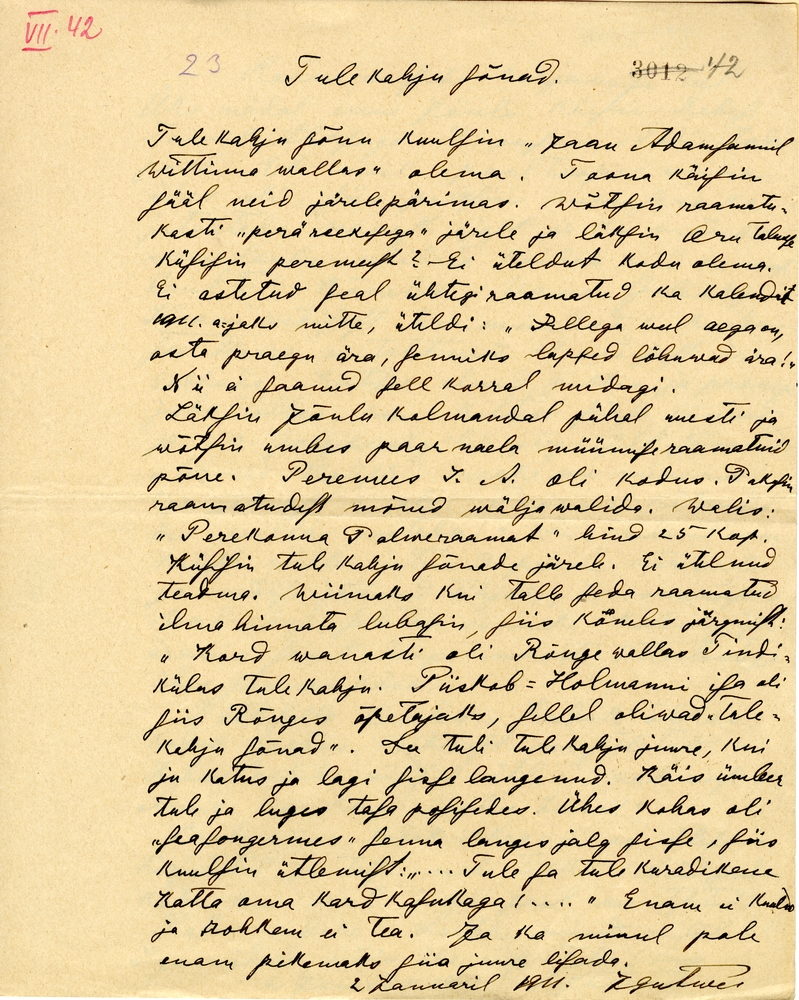 VII. 42
23
3012 42
Tule kahju sõnad.
Tule kahju sõnu kuulsin „Jaan Adamsonnil
Wittinna wallas“ olema. Toona käisin
sääl neid järelepärimas. Wõtsin raamatu-
kasti „perärsekesega“ järele ja läksin Aru talusse
Küsisin peremeest? - Ei üteldut kodu olema.
Ei ostetud seal ühtegi raamatud ka kalendrit
1911. a. jaks mitte, üteldi: „Sellega weel aega on,
osta praegu ära, senniks lapsed lõhuwad ära!“
Nii ei saanud sell korral midagi.
Läksin Jõulu kolmandal pühal uuesti ja
wõtsin umbes paar naela müümise raamatuid
põue. Peremees J. A. oli kodus. Pakksin
raamatudest mõned wälja walida. Walis:
„Perekonna Palweraamat“ hind 25 kop.
Küsisin tule kahju sõnade järele. Ei ütelnud
teadma. Wiimaks kui talle seda raamatud
ilma hinnata lubasin, siis kõneles järgmist:
„Kord wanasti oli Rõuge wallas Tindi-
külas tulekahju. Piiskob-Holmanni isa oli
siis Rõuges õpetajaks, sellel oliwad „tule-
kahju sõnad“. See tuli tulekahju juure, kui
ju katus ja lagi sisse langenud. Käis ümber
tule ja luges tasa possisedes. Ühes kohas oli
„seasongermes“ senna langes jalg sisse, siis
kuulsin ütlemist: „.... Tule sa tule kuradikene
katta oma kard kasukaga!....“ Enam ei kuulnud
ja rohkem ei tea. Ja ka minul pole
enam pikemaks siia juure lisada.
2 Januaril 1911. J Gutwes